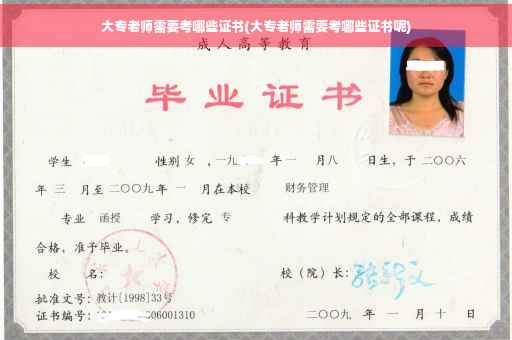 大专老师需要考哪些证书(大专老师需要考哪些证书呢)
成人高等教育
毕业证书
学生 性别 女 ,一九 年一 月八 日生,于二〇〇六
年 三 月至二〇〇九年 一 月在本校 财务管理
专业 函授 学习,修完 专 科教学计划规定的全部课程,成绩
合格,准予毕业。
校 名: 校(院)长:
批准文号:教计[1998]33号
证书编号: 06001310 二〇〇九 年 一 月 十 日